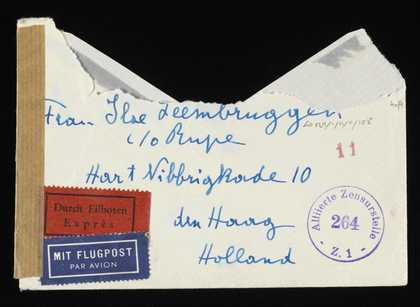 Frau Ilse Leembruggen
c/o Rupe
11
Hart Nibbrigkade 10
Durch Eilboten
Exprès
den Haag
MIT FLUGPOST
PAR AVION
Holland
Alliierte Zensurstelle
264
- Z.1 -